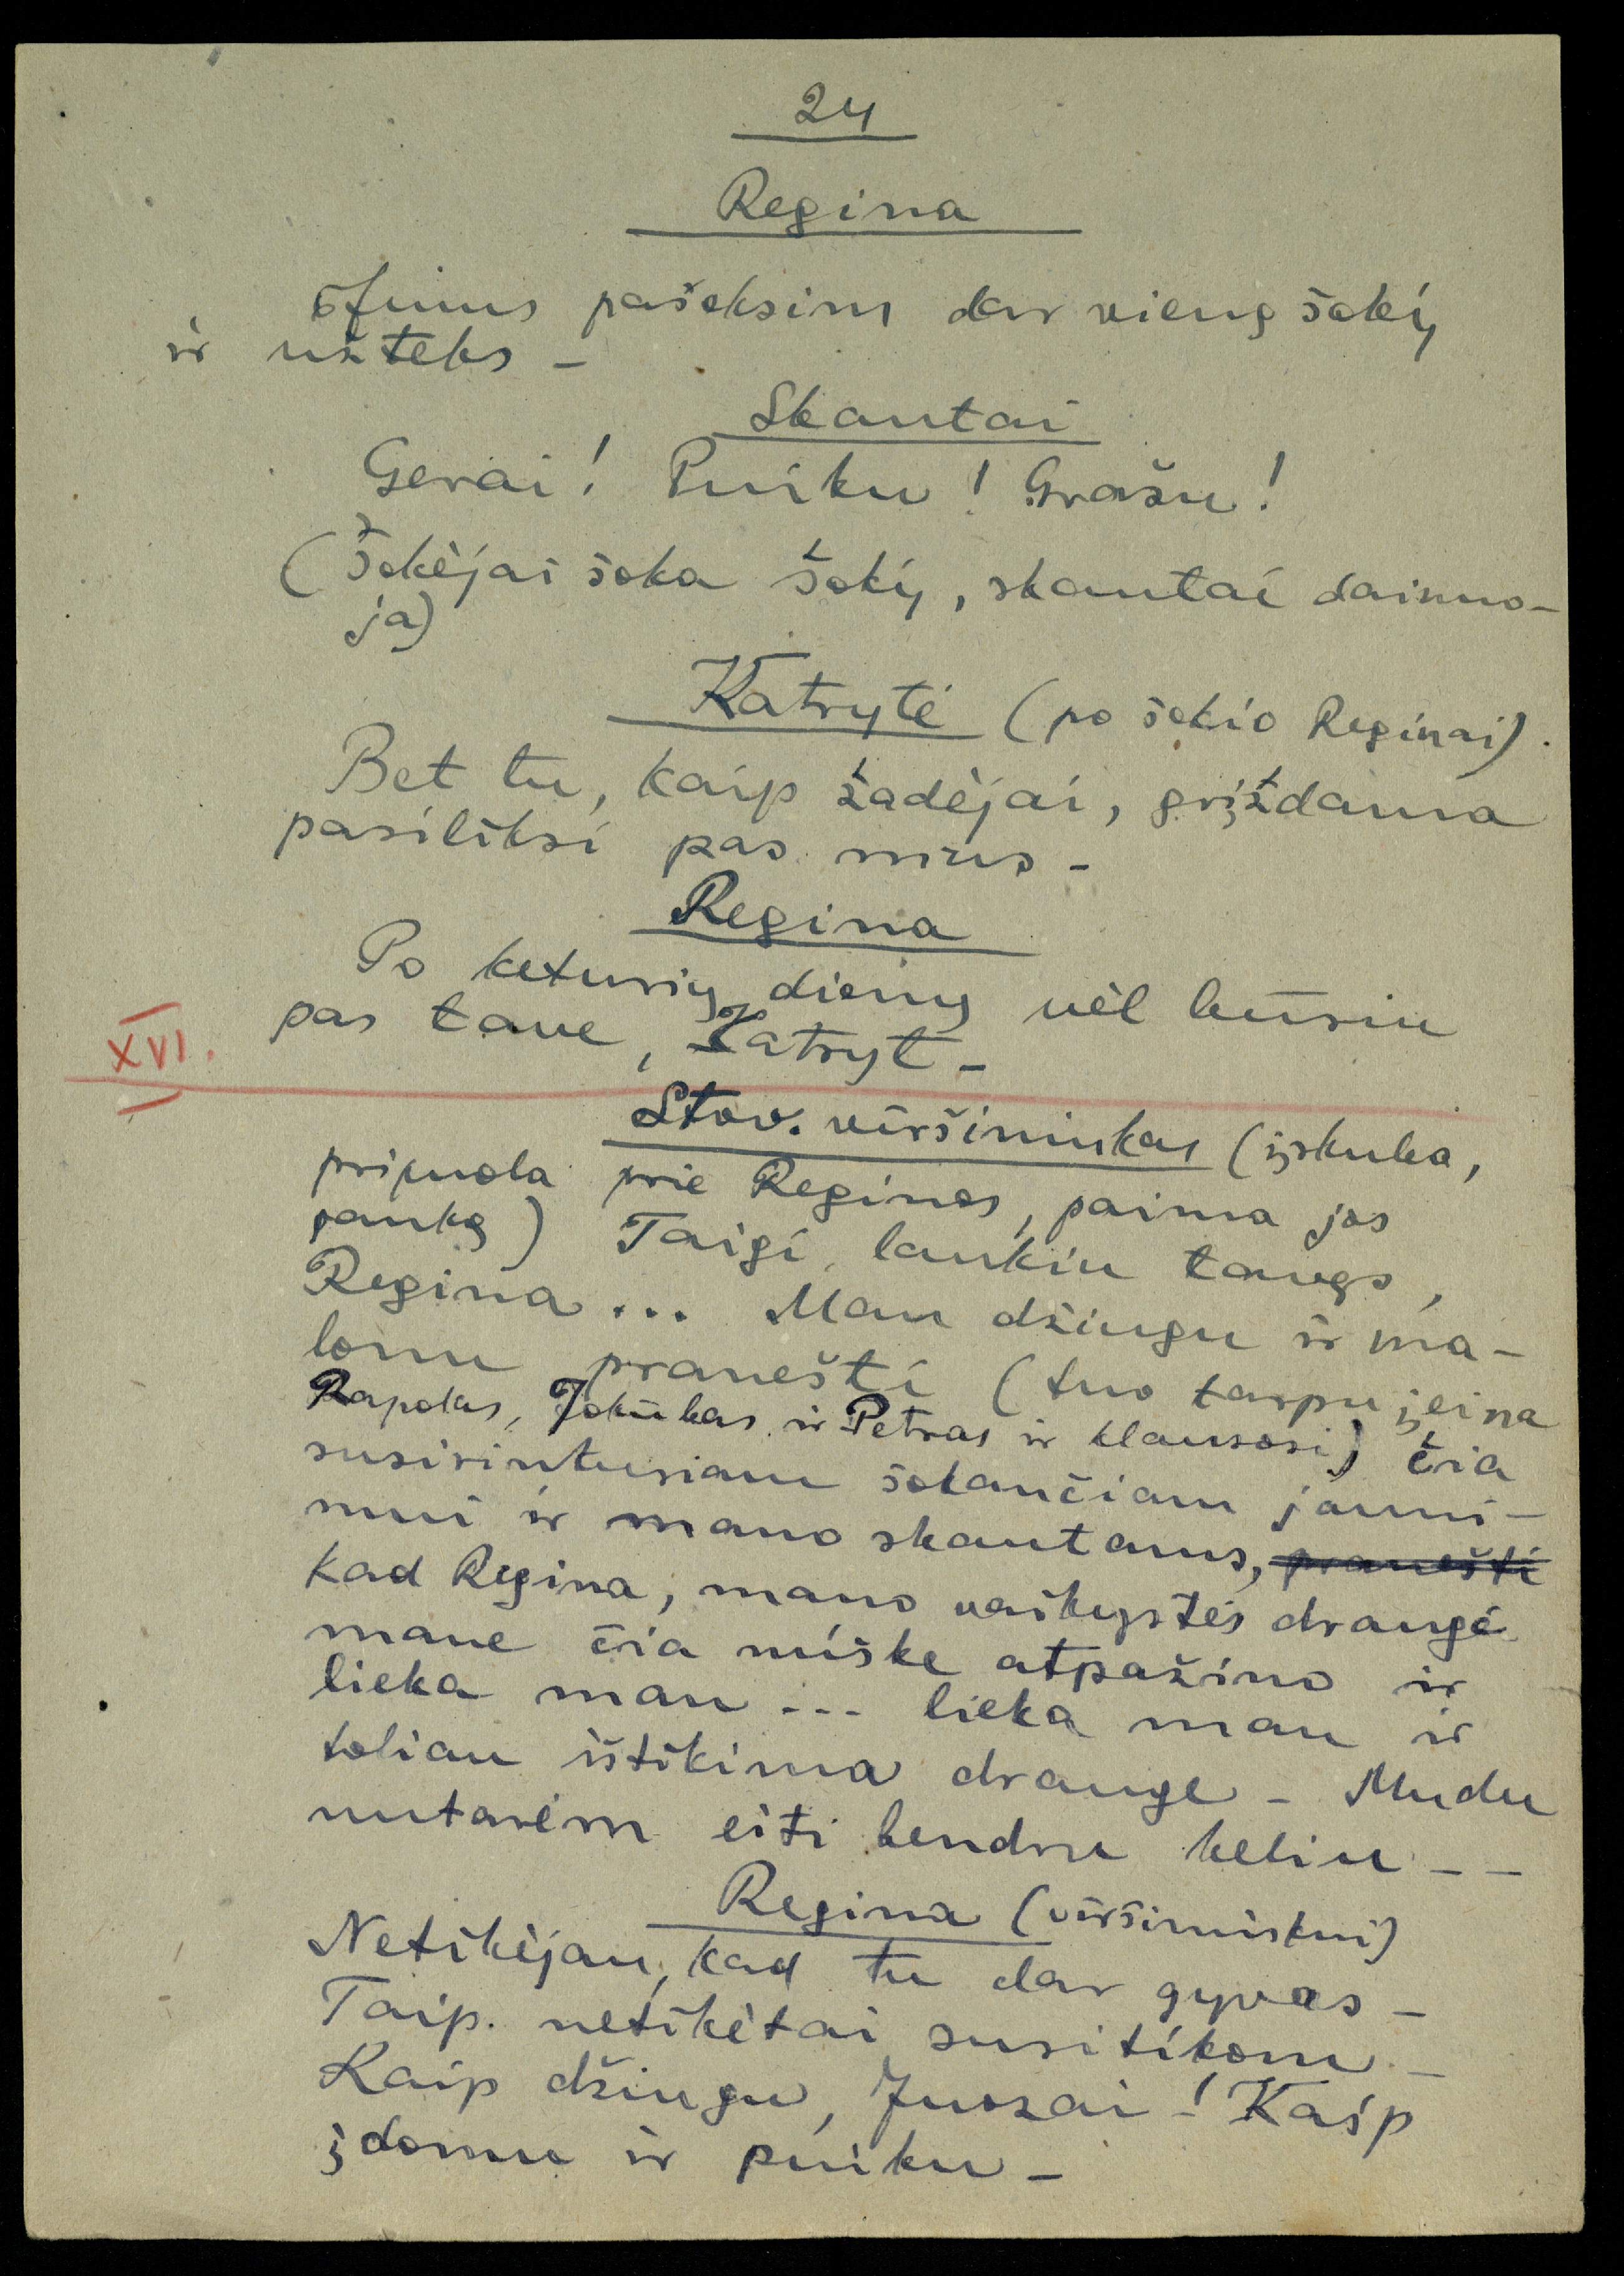 24
Regina
Jums pašoksim dar vieną šokį
ir užteks –
Skautai
Gerai! Puiku! Gražu!
(Šokėjai šoka šokį, skautai dainuo-
ja)
Katrytė (po šokio Reginai).
Bet tu, kaip žadėjai, grįždama
pasiliksi pas mus –
Regina
Po keturių dienų vėl būsiu
pas tave, Katryt –
XVI.
Stov. viršininkas (įskuba,
pripuola prie Reginos, paima jos
ranką) Taigi, laukiu tavęs,
Regina... Man džiugu ir ma-
lonu pranešti (tuo tarpu įeina
Rapolas, Jokūbas ir Petras ir klausosi) čia
susirinkusiam šokančiam jauni-
mui ir mano skautams, pranešti
kad Regina, mano vaikystės draugė
mane čia miške atpažino ir
lieka man --- lieka man ir
toliau ištikima drauge – Mudu
nutarėm eiti bendru keliu – –
Regina (viršininkui)
Netikėjau, kad tu dar gyvas –
Taip. netikėtai susitikom –
Kaip džiugu, Juozai! Kaip
įdomu ir puiku –